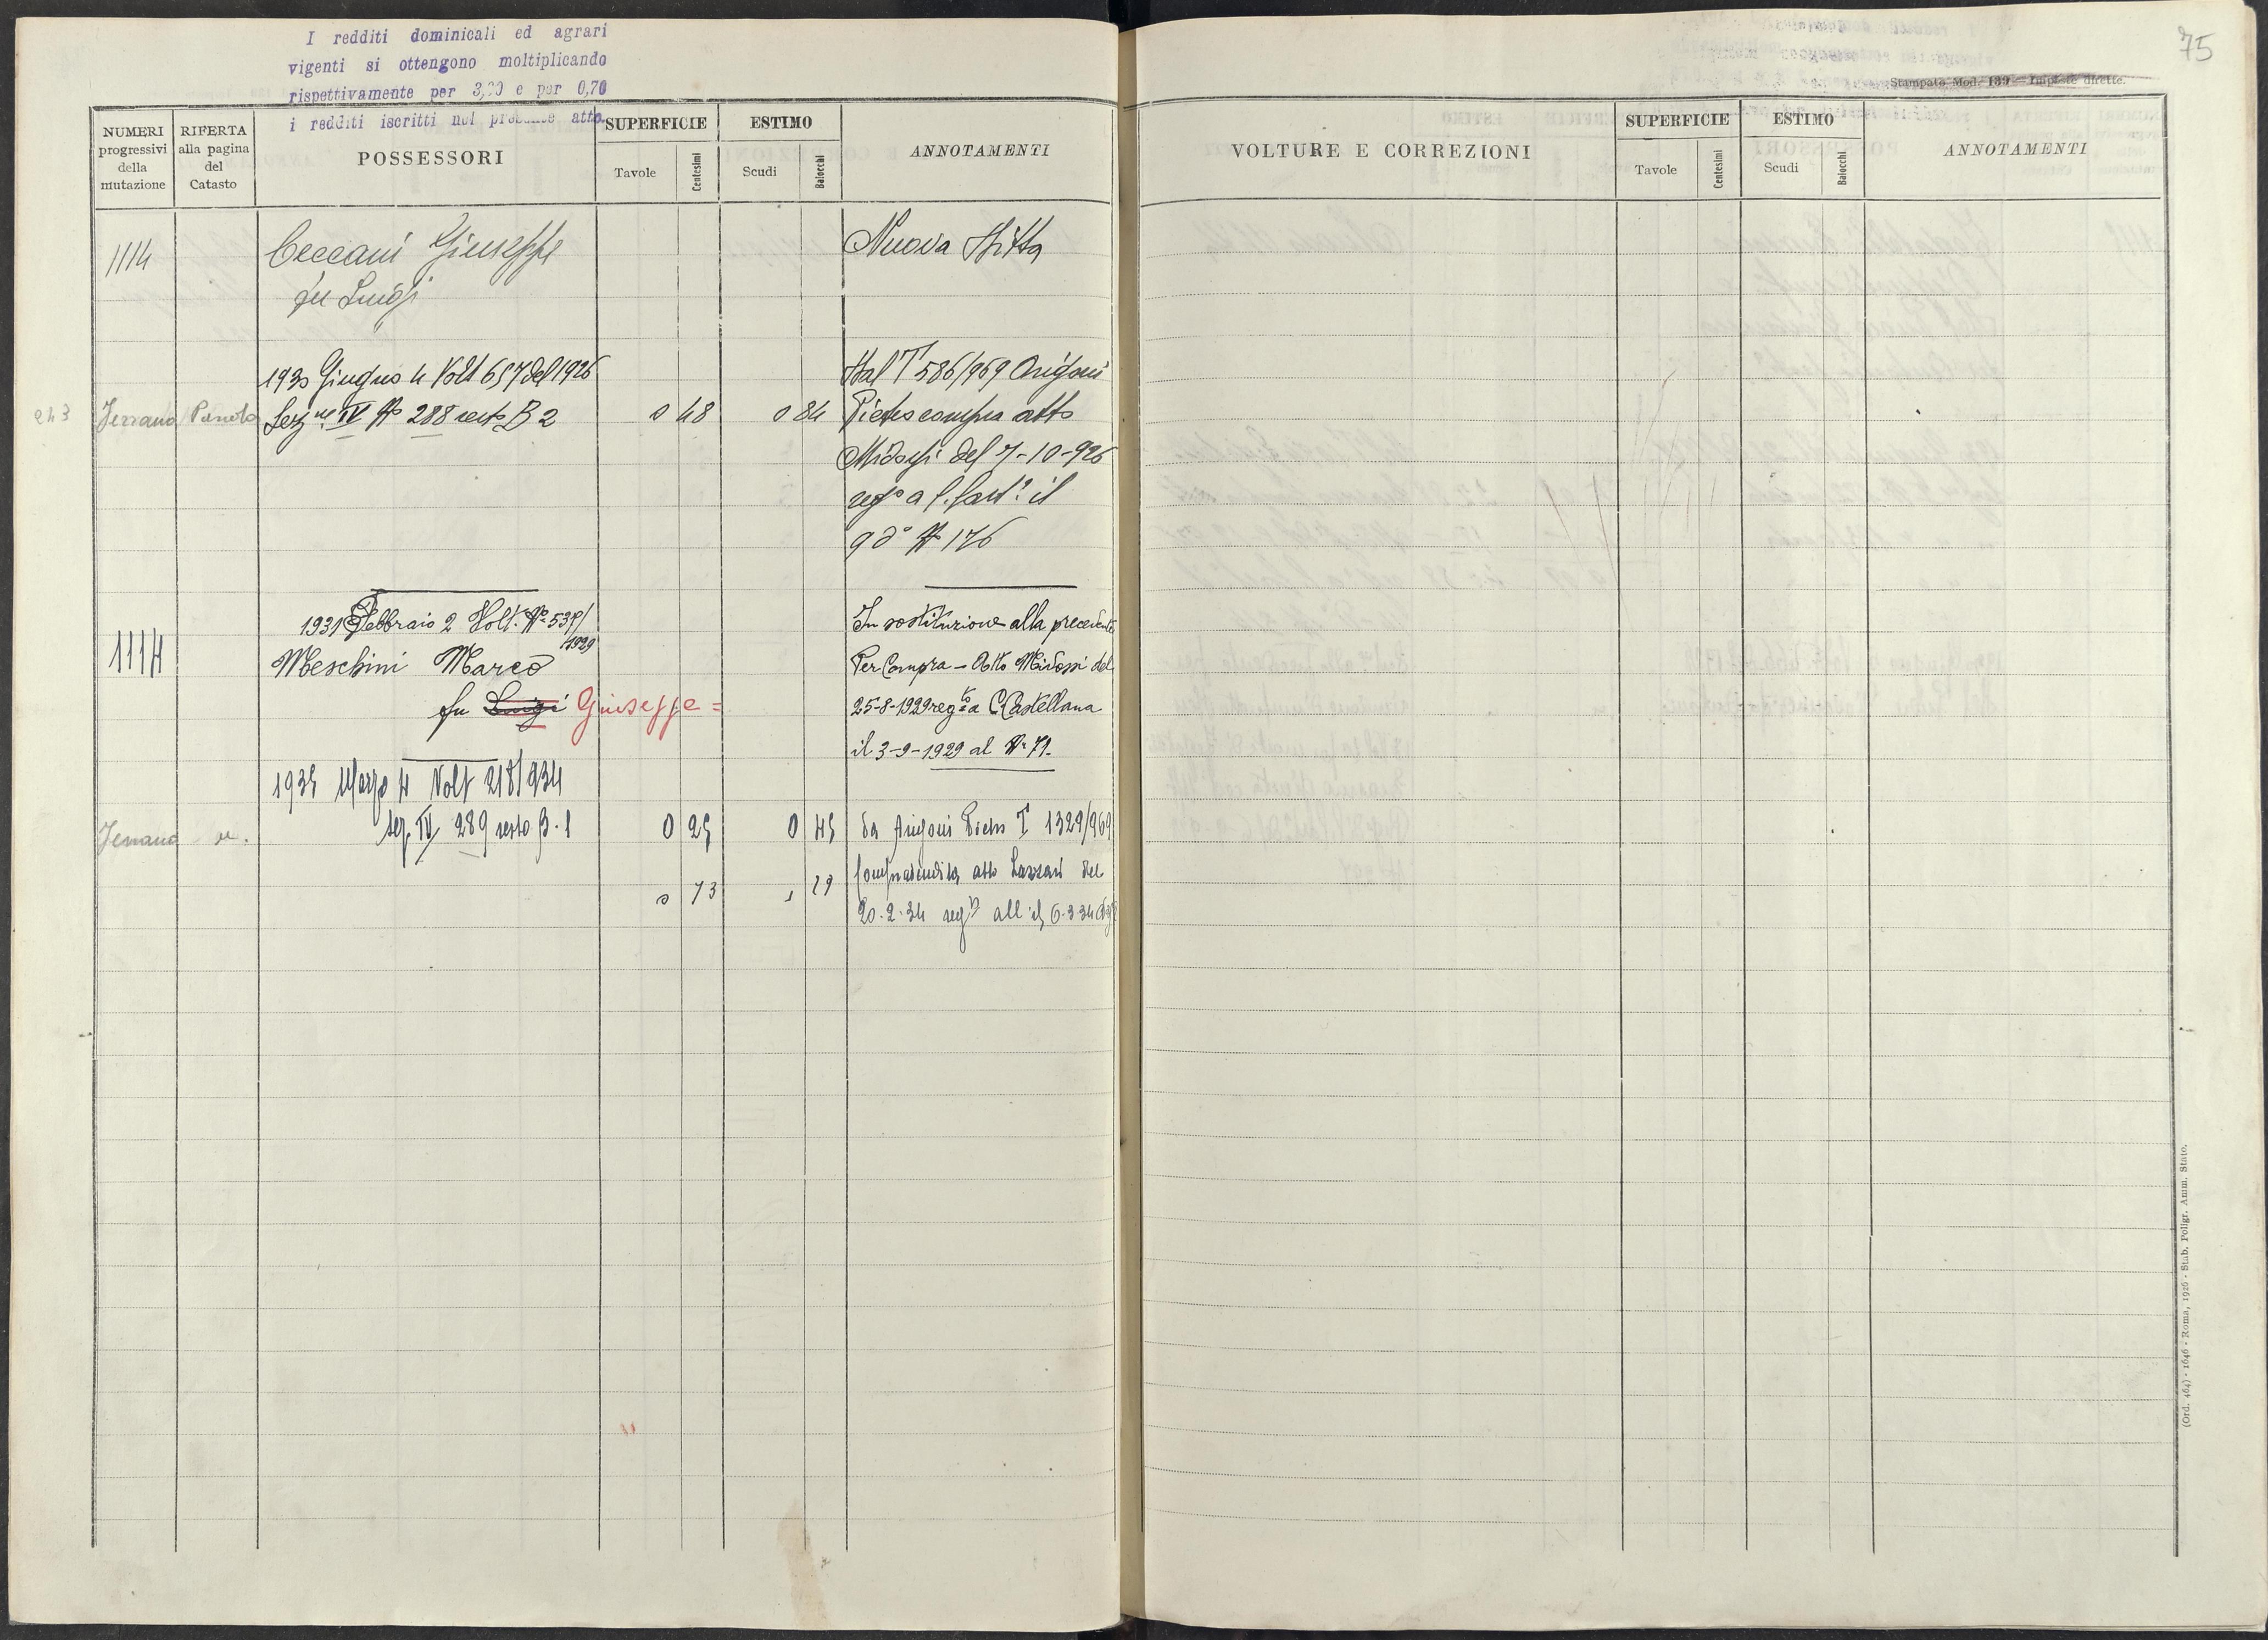 I redditi dominicali ed agrari
vigenti si ottengono moltiplicando
rispettivamente per 3,20 e per 0,70
i redditi iscritti nel presente atto.
75
Stampato Mod. 139 — Imposte dirette.
NUMERI progressivi della mutazione
RIFERTA alla pagina del Catasto
POSSESSORI
SUPERFICIE
Tavole
Centesimi
ESTIMO
Scudi
Baiocchi
ANNOTAMENTI
VOLTURE E CORREZIONI
SUPERFICIE
Tavole
Centesimi
ESTIMO
Scudi
Baiocchi
ANNOTAMENTI
1114 Ceccani Giuseppe Nuova Ditta
fu Luigi
1930 Giugno 4 Volt 657 del 1926 Dal T 586/969 Arigoni
243 Sez ne IV No 288 resto B 2 0 48 0 84 Pietro compra atto
Midossi del 7-10-926
reg o a il
9 do No 176
1931 Febbraio 2 Volt. No 537/1929 In sostituzione alla precedente
1114 Meschini Marco Per Compra - Atto Midossi del
fu Luigi Giuseppe = 25-8-1929 reg to a C. Castellana
il 3-9-1929 al No 71.
1935 Marzo 4 Volt 218/934
sez. IV 289 resto B. 1 0 25 0 45 da Arigoni Pietro T 1329/969
0 73 , 29 Compravendita atto Lazzari del
20.2.34 reg to all il 6.3.34
(Ord. 464) - 1646 - Roma, 1926 - Stab. Poligr. Amm. Stato.